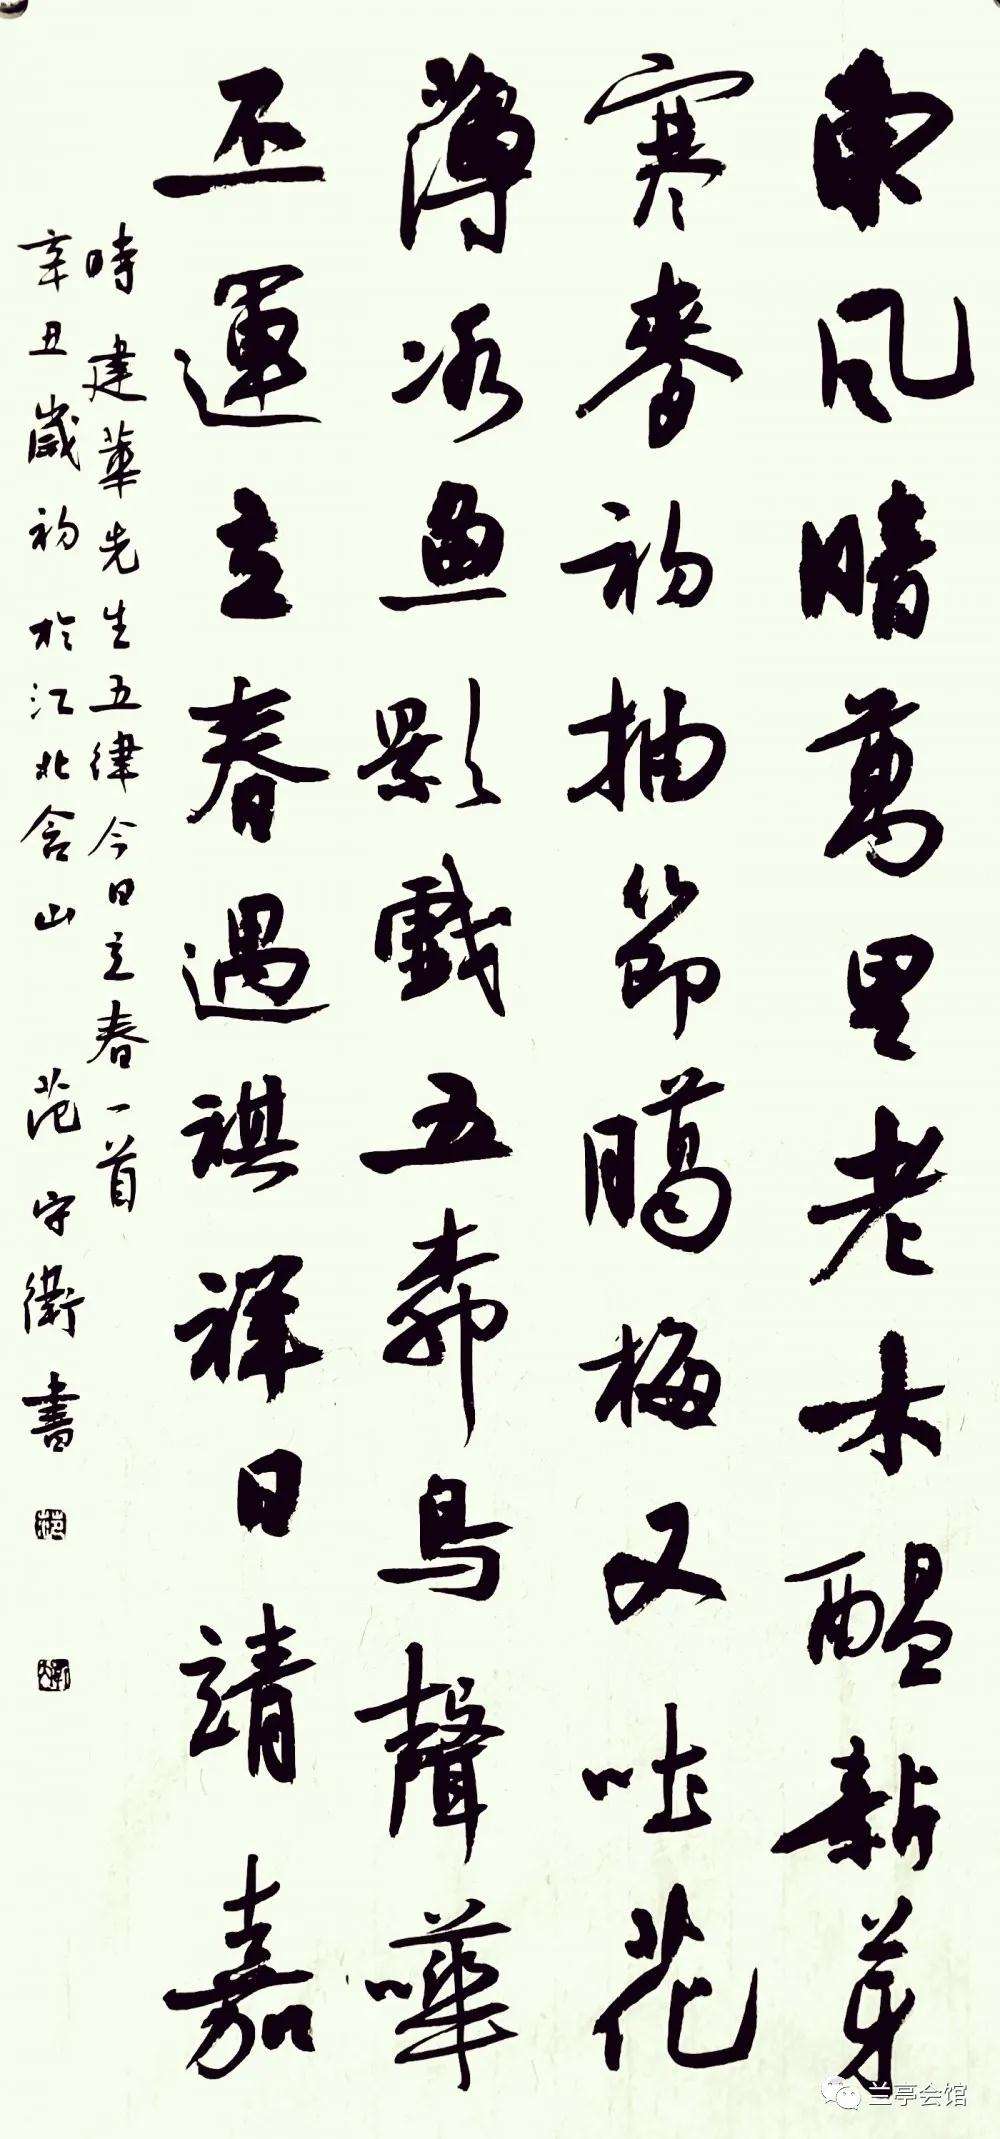 東風暗萬里老木醖新芽
寒麥初抽節臈梅又吐花
薄冰魚影戲五桺鳥聲嘩
丕運立春遇祺祥日靖嘉
時建華先生五律今日立春一首
辛丑歲初於江北含山 范守衛書
兰亭会馆